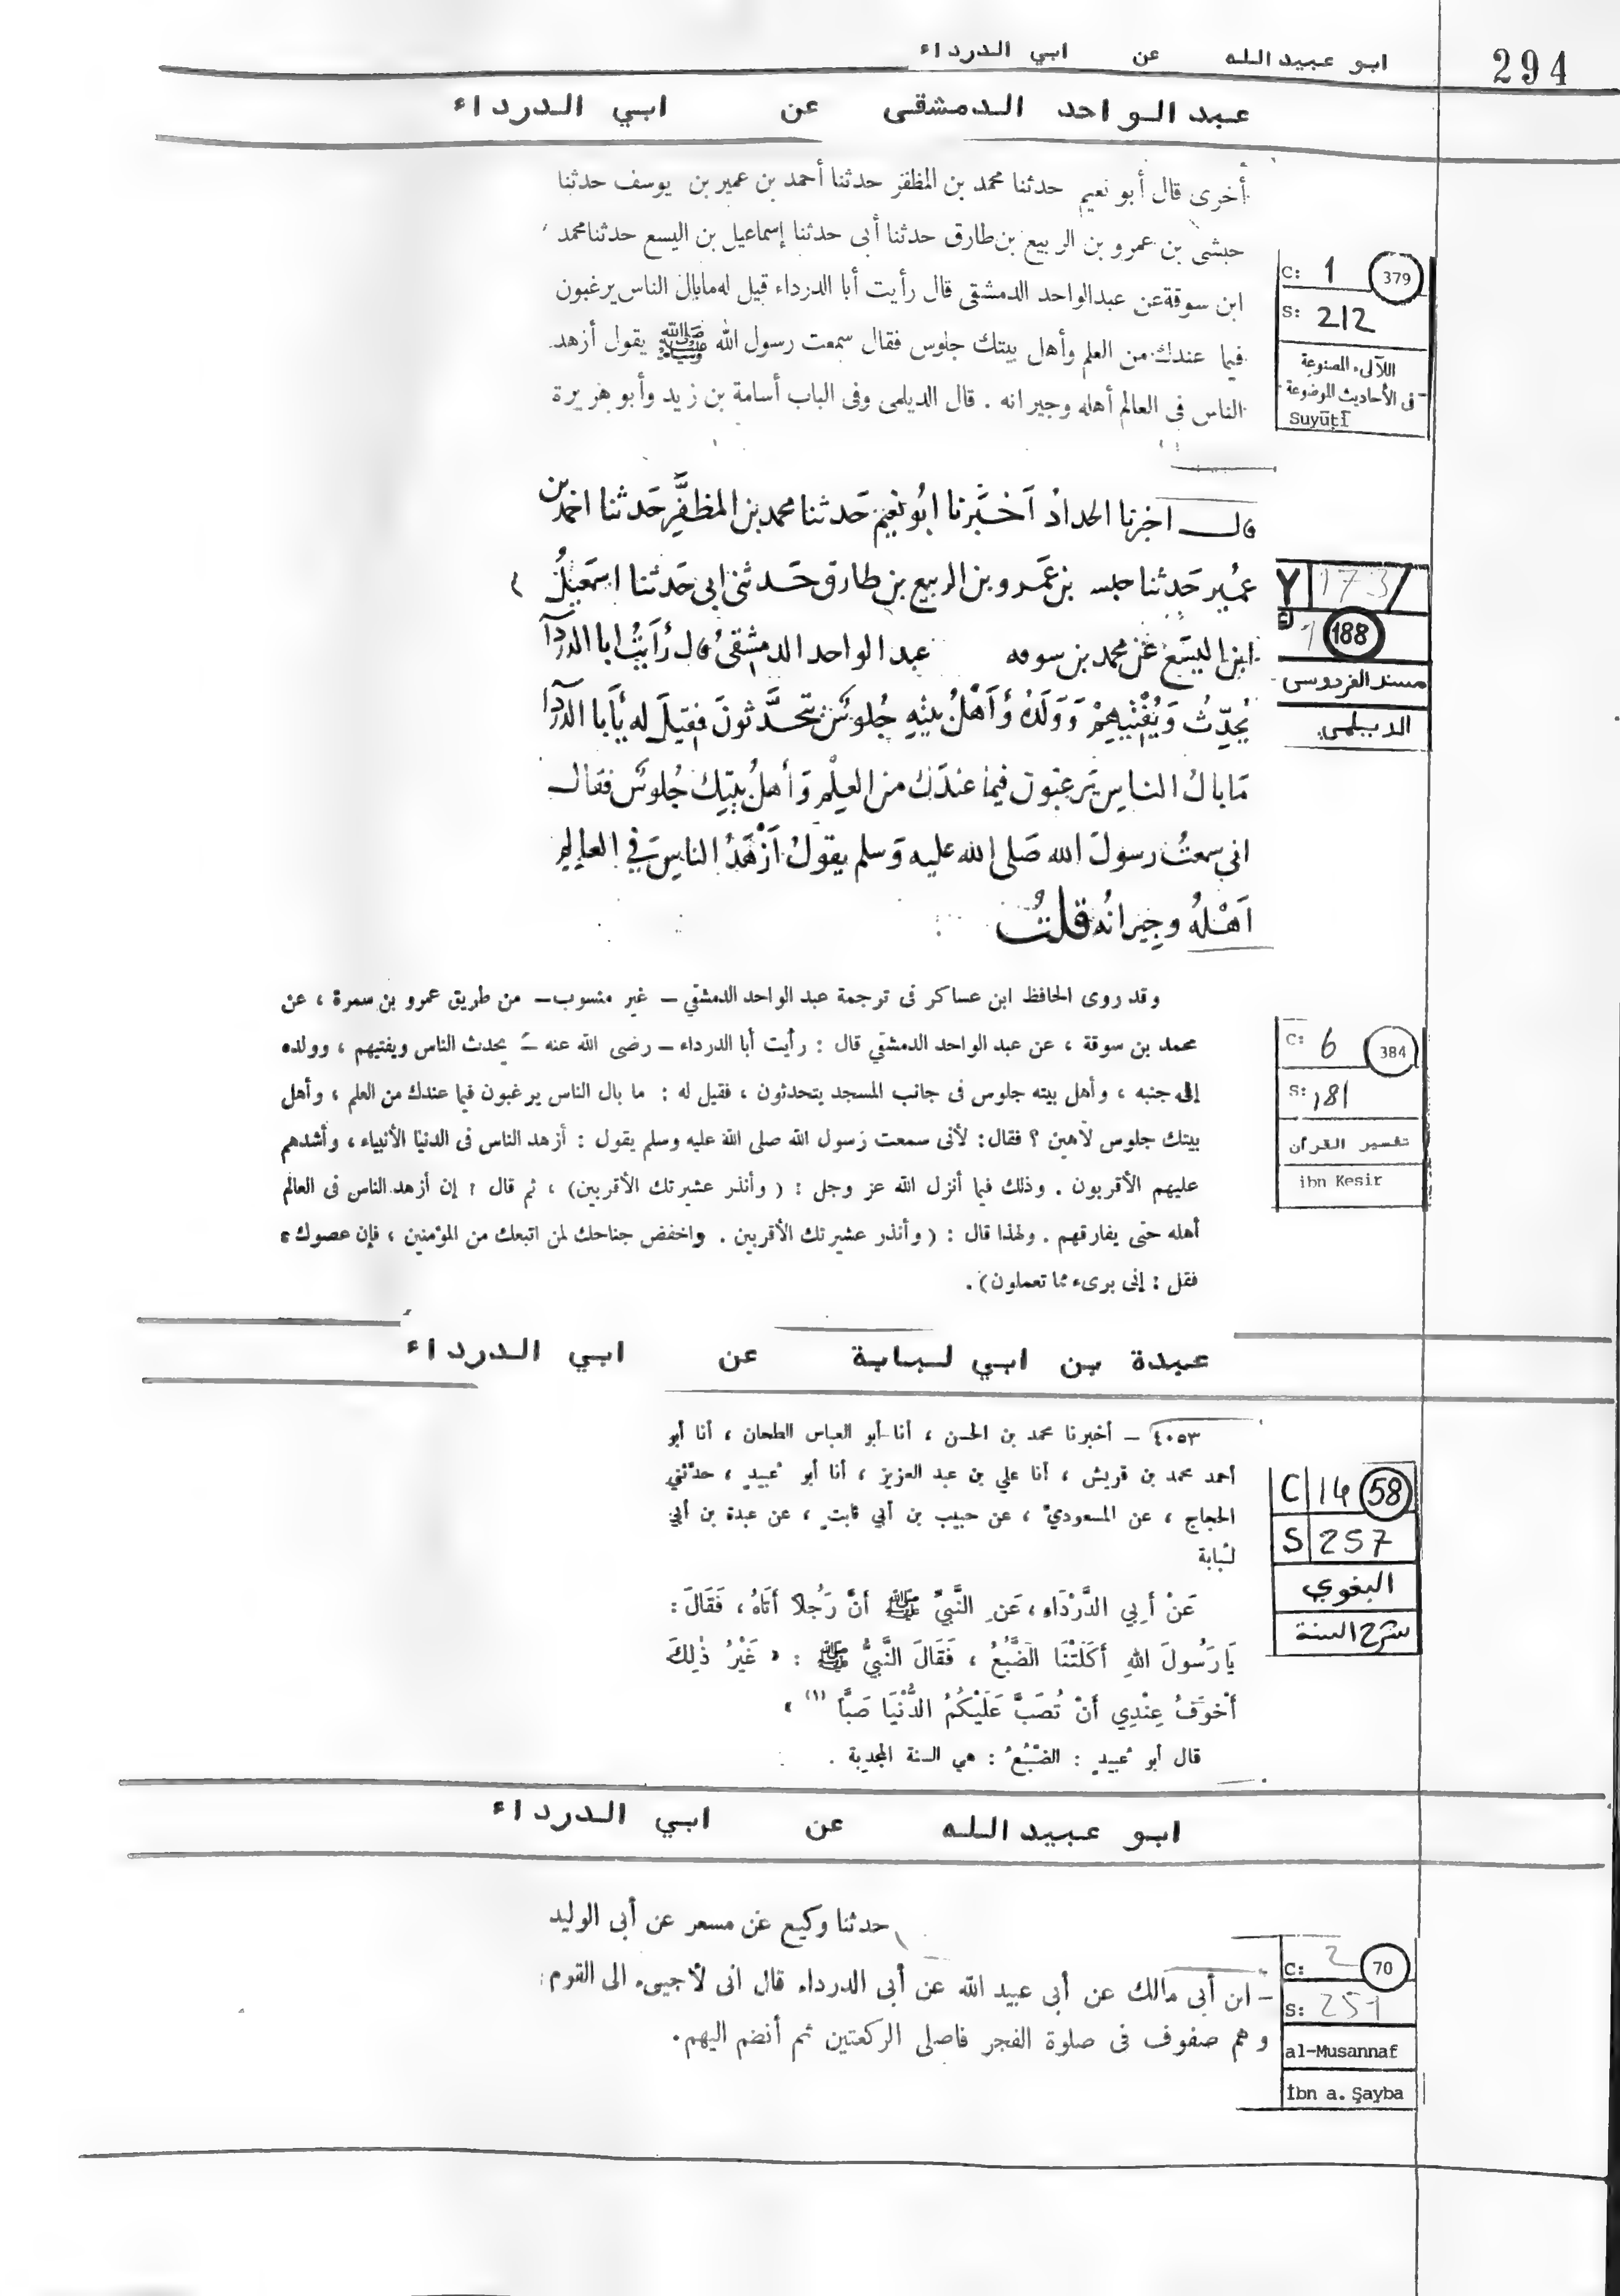 294
ابو عبيدالله عن ابي الدرداء
عبد الواحد الدمشقى عن ابي الدرداء
أخرى قال أبو نعيم حدثنا محمد بن المظفر حدثنا أحمد بن عمير بن يوسف حدثنا
حبشى بن عمرو بن الربيع بن طارق حدثنا أبى حدثنا إسماعيل بن اليسع حدثنا محمد
ابن سوقة عن عبدالواحد الدمشقى قال رأيت أبا الدرداء قيل له مابال الناس يرغبون
فيما عندك من العلم وأهل بيتك جلوس فقال سمعت رسول الله ﷺ يقول أزهد
الناس فى العالم أهله وجيرانه . قال الديلمى وفى الباب أسامة بن زيد وأبو هريرة
C: 1 379
S: 212
اللآلىء المصنوعة
فى الأحاديث الموضوعة
Suyūṭī
قال اخبرنا الحداد أَخبَرنا ابُو نعيم حَدثنا محمد بن المظفَّر حَدثنا احمد بن
عمُير حَدثنا حلسه بن عَمرو بن الربيع بن طارق حَدثنى ابى حَدثنا اسمَعيل
ابن اليسَع عن محمد بن سوقه عبد الواحد الدمشقىُ قال رُأيتُ ابا الدردآ
يُحدِّثُ وَيُفْتيهِمْ وَوَلَدُهُ وَأَهْلُ بيتِهِ جُلوسٌ يتحَدَّثونَ فقيلَ له يَأبا الدردآ
مَابالُ الناسِ يَرغبون فيمَا عندَك من العِلْم وَأهلُ بيتِك جُلوسٌ فقال
انى سمعتُ رسولَ الله صَلى الله عليه وَسلم يقولُ أَزْهَدُ الناسِ في العالِم
أهْلهُ وجِيرانُه قلتُ
Y 173/
188
مسند الفردوسى
الديلمي
وقد روى الحافظ ابن عساكر فى ترجمة عبد الواحد الدمشقي – غير منسوب – من طريق عمرو بن سمرة ، عن
محمد بن سوقة ، عن عبد الواحد الدمشقي قال : رأيت أبا الدرداء – رضى الله عنه – يحدث الناس ويفتيهم ، وولده
إلى جنبه ، وأهل بيته جلوس فى جانب المسجد يتحدثون ، فقيل له : ما بال الناس يرغبون فيما عندك من العلم ، وأهل
بيتك جلوس لاهين ؟ فقال : لأنى سمعت رسول الله صلى الله عليه وسلم يقول : أزهد الناس فى الدنيا الأنبياء ، وأشدهم
عليهم الأقربون . وذلك فيما أنزل الله عز وجل : ( وأنذر عشيرتك الأقربين ) ، ثم قال : إن أزهد الناس فى العالم
أهله حتى يفارقهم . ولهذا قال : ( وأنذر عشيرتك الأقربين . واخفض جناحك لمن اتبعك من المؤمنين ، فإن عصوك ،
فقل : إنى برىء مما تعملون ) .
C: 6 384
S: 181
تفسير القرآن
ibn Kesir
عبدة بن ابي لبابة عن ابي الدرداء
٤٠٥٣ – أخبرنا محمد بن الحسن ، أنا أبو العباس الطحان ، أنا أبو
أحمد محمد بن قريش ، أنا علي بن عبد العزيز ، أنا أبو عُبيدٍ ، حدّثني
الحجاج ، عن المسعوديّ ، عن حبيب بن أبي ثابتٍ ، عن عبدة بن أبي
لُبابة
عَنْ أَبِي الدَّرْدَاءِ ، عَنِ النَّبِيِّ ﷺ أَنَّ رَجُلاً أَتَاهُ ، فَقَالَ :
يَا رَسُولَ اللهِ أَكَلَتْنَا الضَّبُعُ ، فَقَالَ النَّبِيُّ ﷺ : « غَيْرُ ذٰلِكَ
أَخْوَفُ عِنْدِي أَنْ تُصَبَّ عَلَيْكُمُ الدُّنْيَا صَبًّا (١) »
قال أبو عُبيدٍ : الضَّبُعُ : هي السنة المجدبة .
C 14 58
S 257
البغوي
شرح السنة
ابو عبيدالله عن ابي الدرداء
حدثنا وكيع عن مسعر عن أبى الوليد
– ابن أبى مالك عن أبى عبيد الله عن أبى الدرداء قال انى لأجيىء الى القوم
وهم صفوف فى صلوة الفجر فاصلى الركعتين ثم أنضم اليهم .
C: 2 70
S: 251
al-Musannaf
İbn a. Şayba